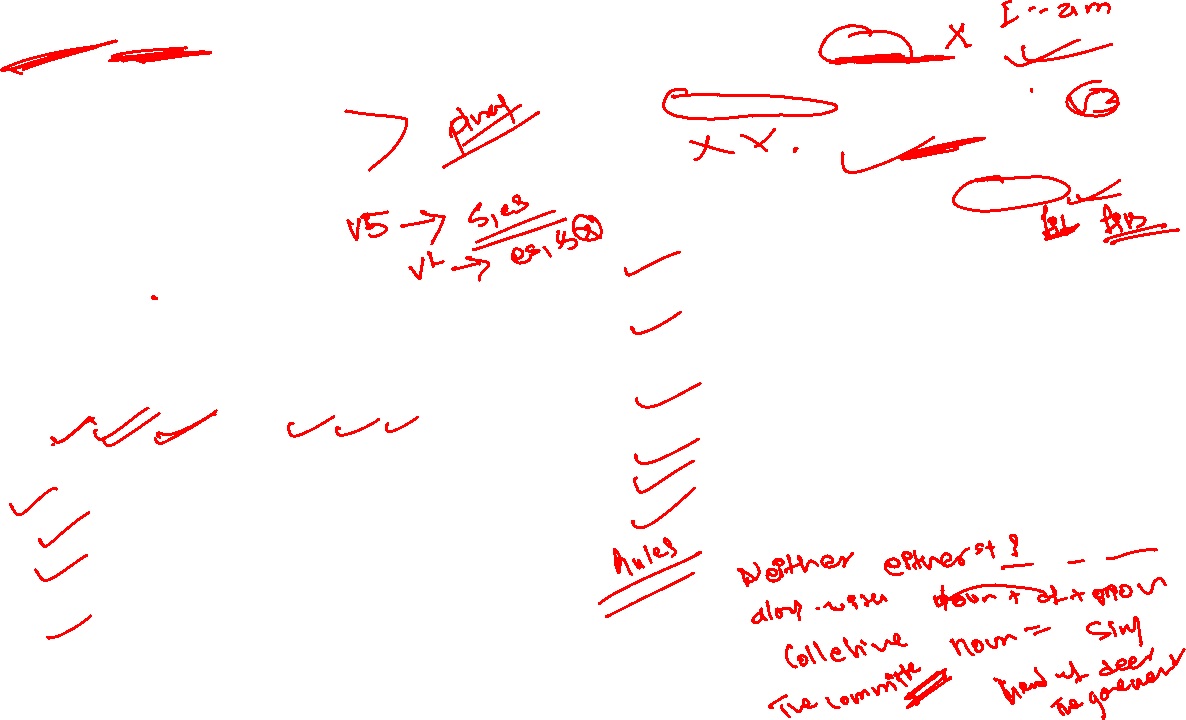 I -- am
plural
V5 → s, es
V1 → es, s
Rules
Neither either
along-with noun + of + noun
Collective noun = Sing
The committe
Herd of deer
The goverment